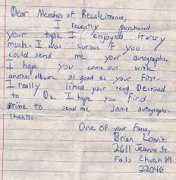 Dear Member of
I recently purchased
your tape I enjoyed it very
much. I was curious if you
could send me your autographs
I hope you come out with
another album as good as your first.
I really liked your
to Do. I hope you find
time to send me some autographs.
thanks
One of your fans,
Brian
2611 St
Falls Church
22046